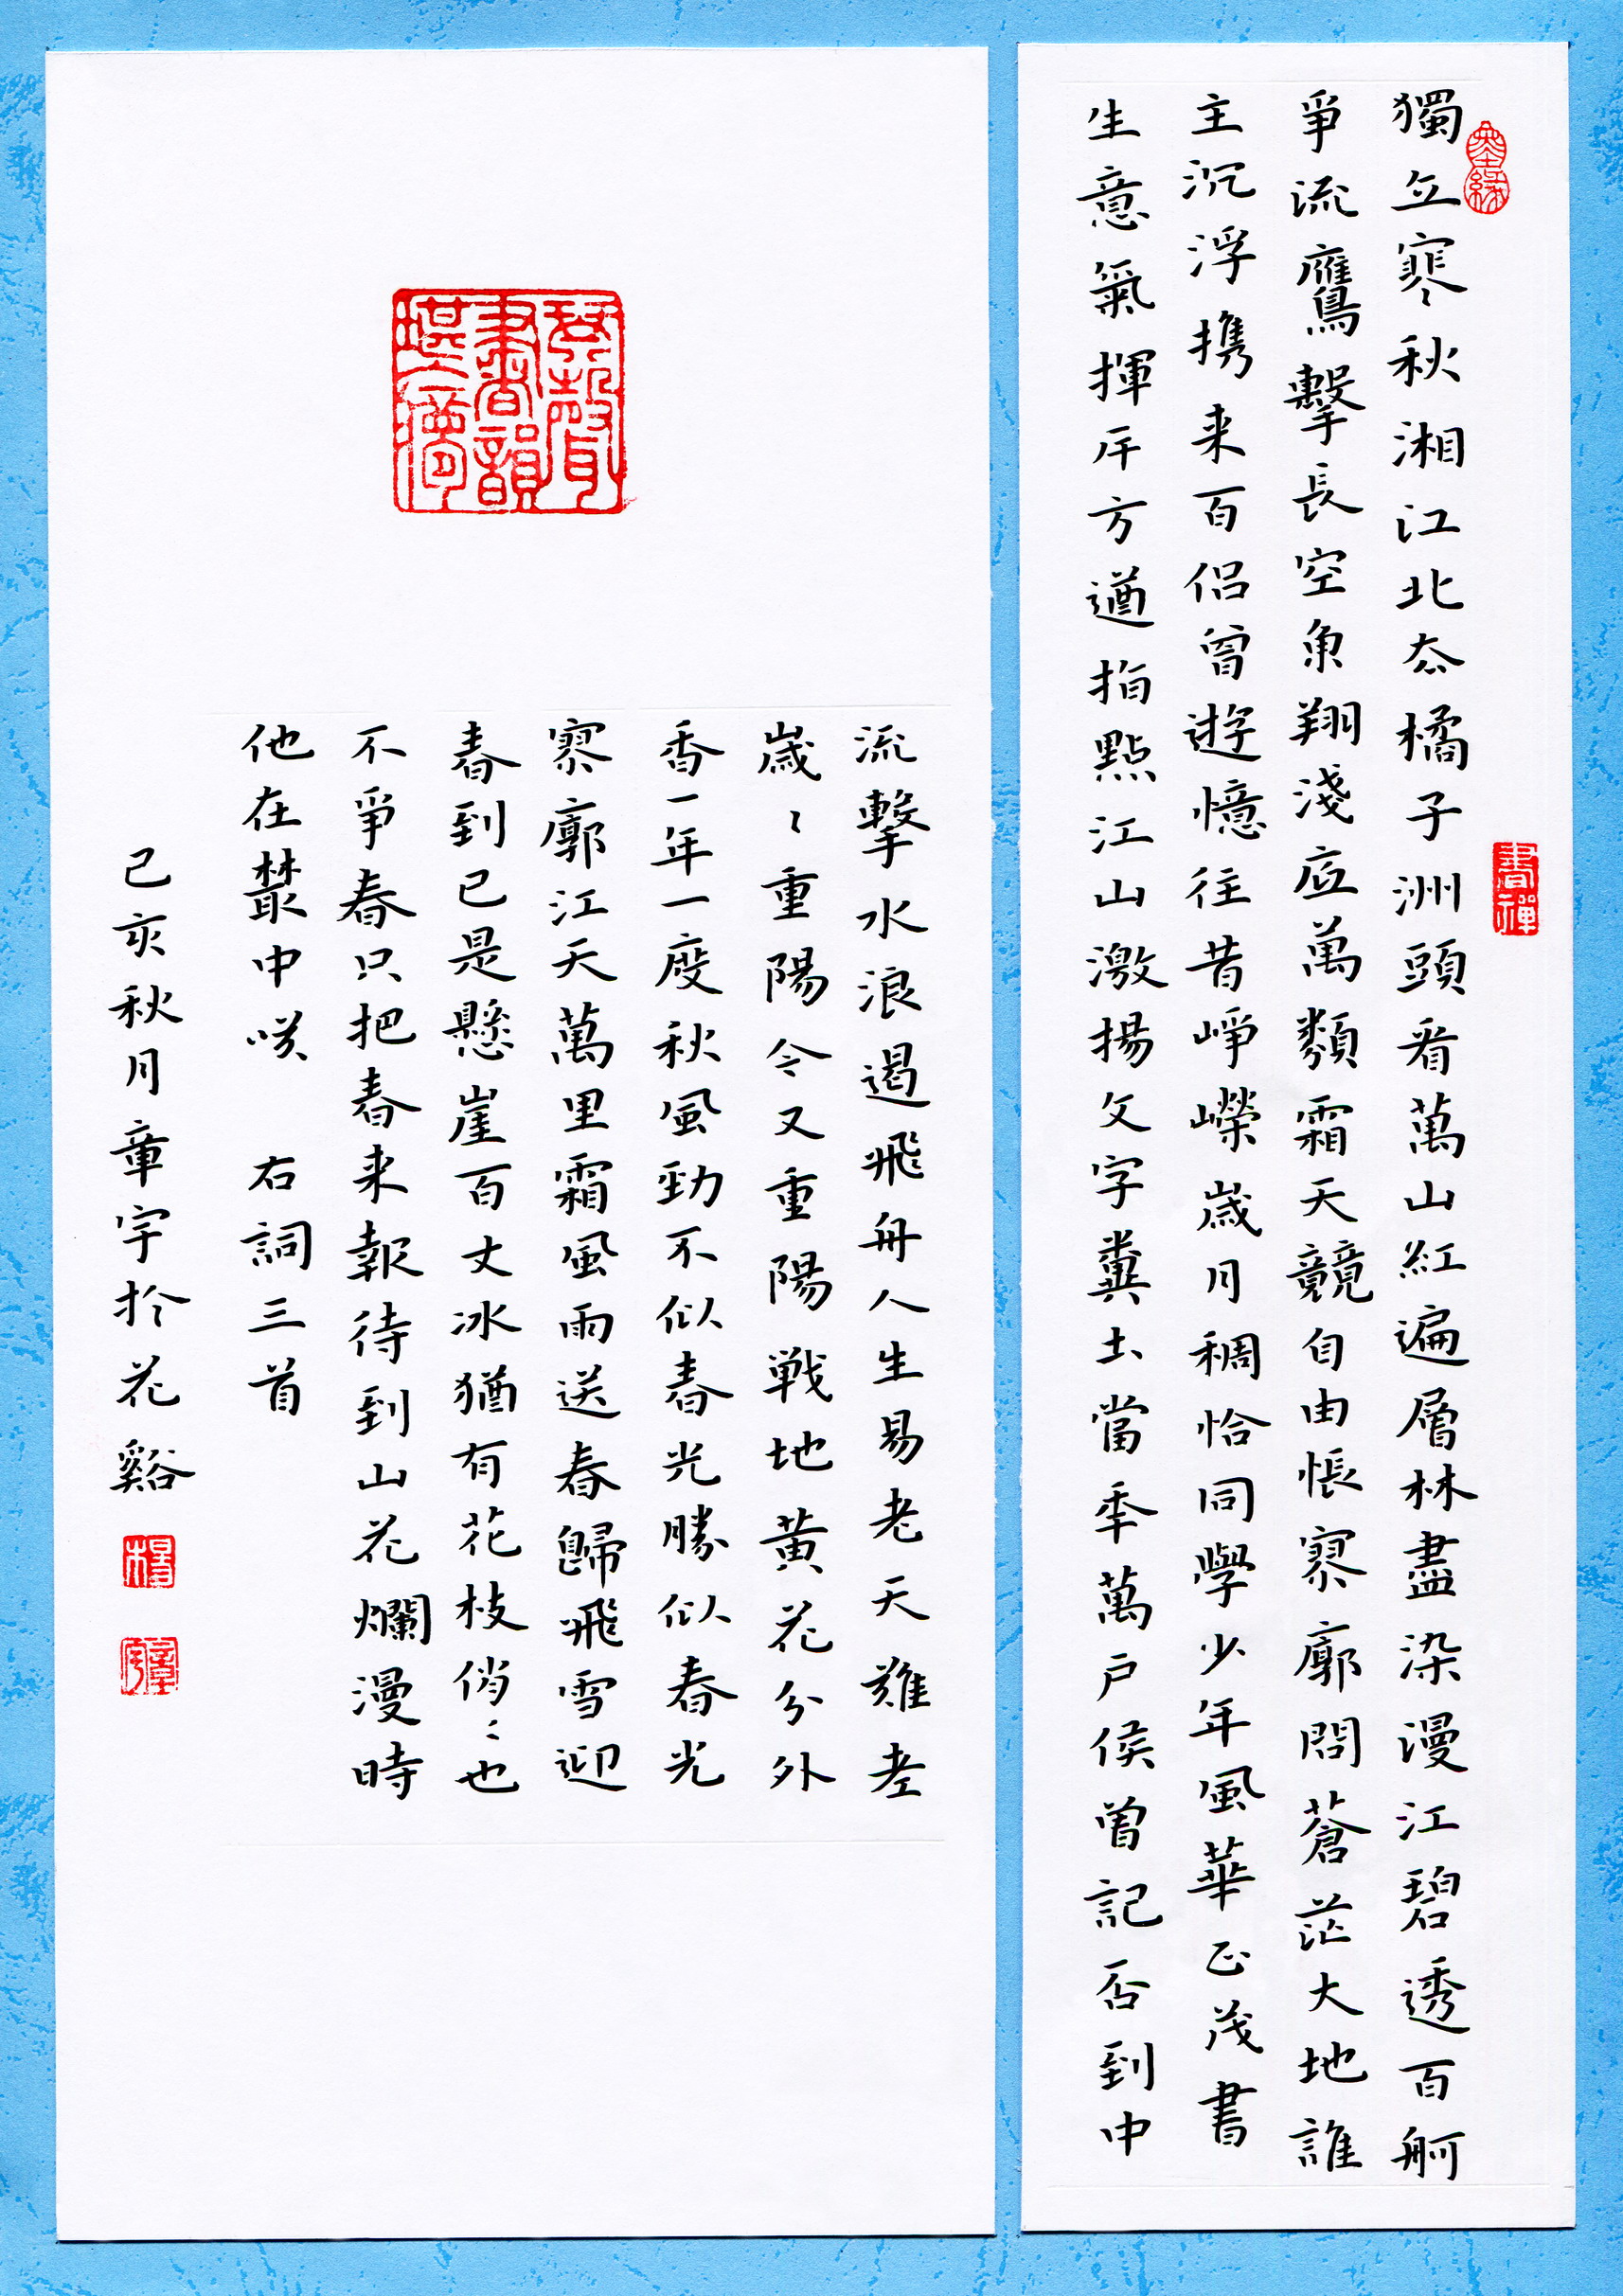 墨緣
獨立寒秋湘江北去橘子洲頭看萬山紅遍層林盡染漫江碧透百舸
書禪
爭流鷹擊長空魚翔淺底萬類霜天競自由悵寥廓問蒼茫大地誰
主沉浮携来百侣曾遊憶往昔崢嶸歲月稠恰同學少年風華正茂書
生意氣揮斥方遒指點江山激揚文字糞土當年萬户侯曾記否到中
流擊水浪遏飛舟人生易老天難老
歲〻重陽今又重陽戦地黃花分外
香一年一度秋風勁不似春光勝似春光
寥廓江天萬里霜風雨送春歸飛雪迎
春到已是懸崖百丈冰猶有花枝俏〻也
不爭春只把春来報待到山花爛漫時
他在叢中咲 右詞三首
己亥秋月章宇於花谿
楊
章宇